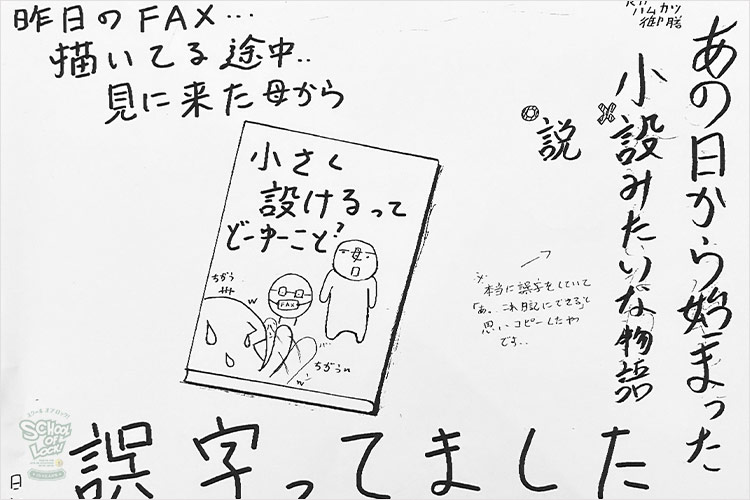 昨日のFAX…
描いてる途中..
見に来た母から
御膳
あの日から始まった
小設みたいな物語
説
小さく
設けるって
どーゆーこと?
母
FAX
ちがう
ちがうw
※
本当に誤字をしていて
「あ。これ日記にできる」と
思いコピーしたや
です..
誤字ってました
SCHOOL
OF
LOCK!
日